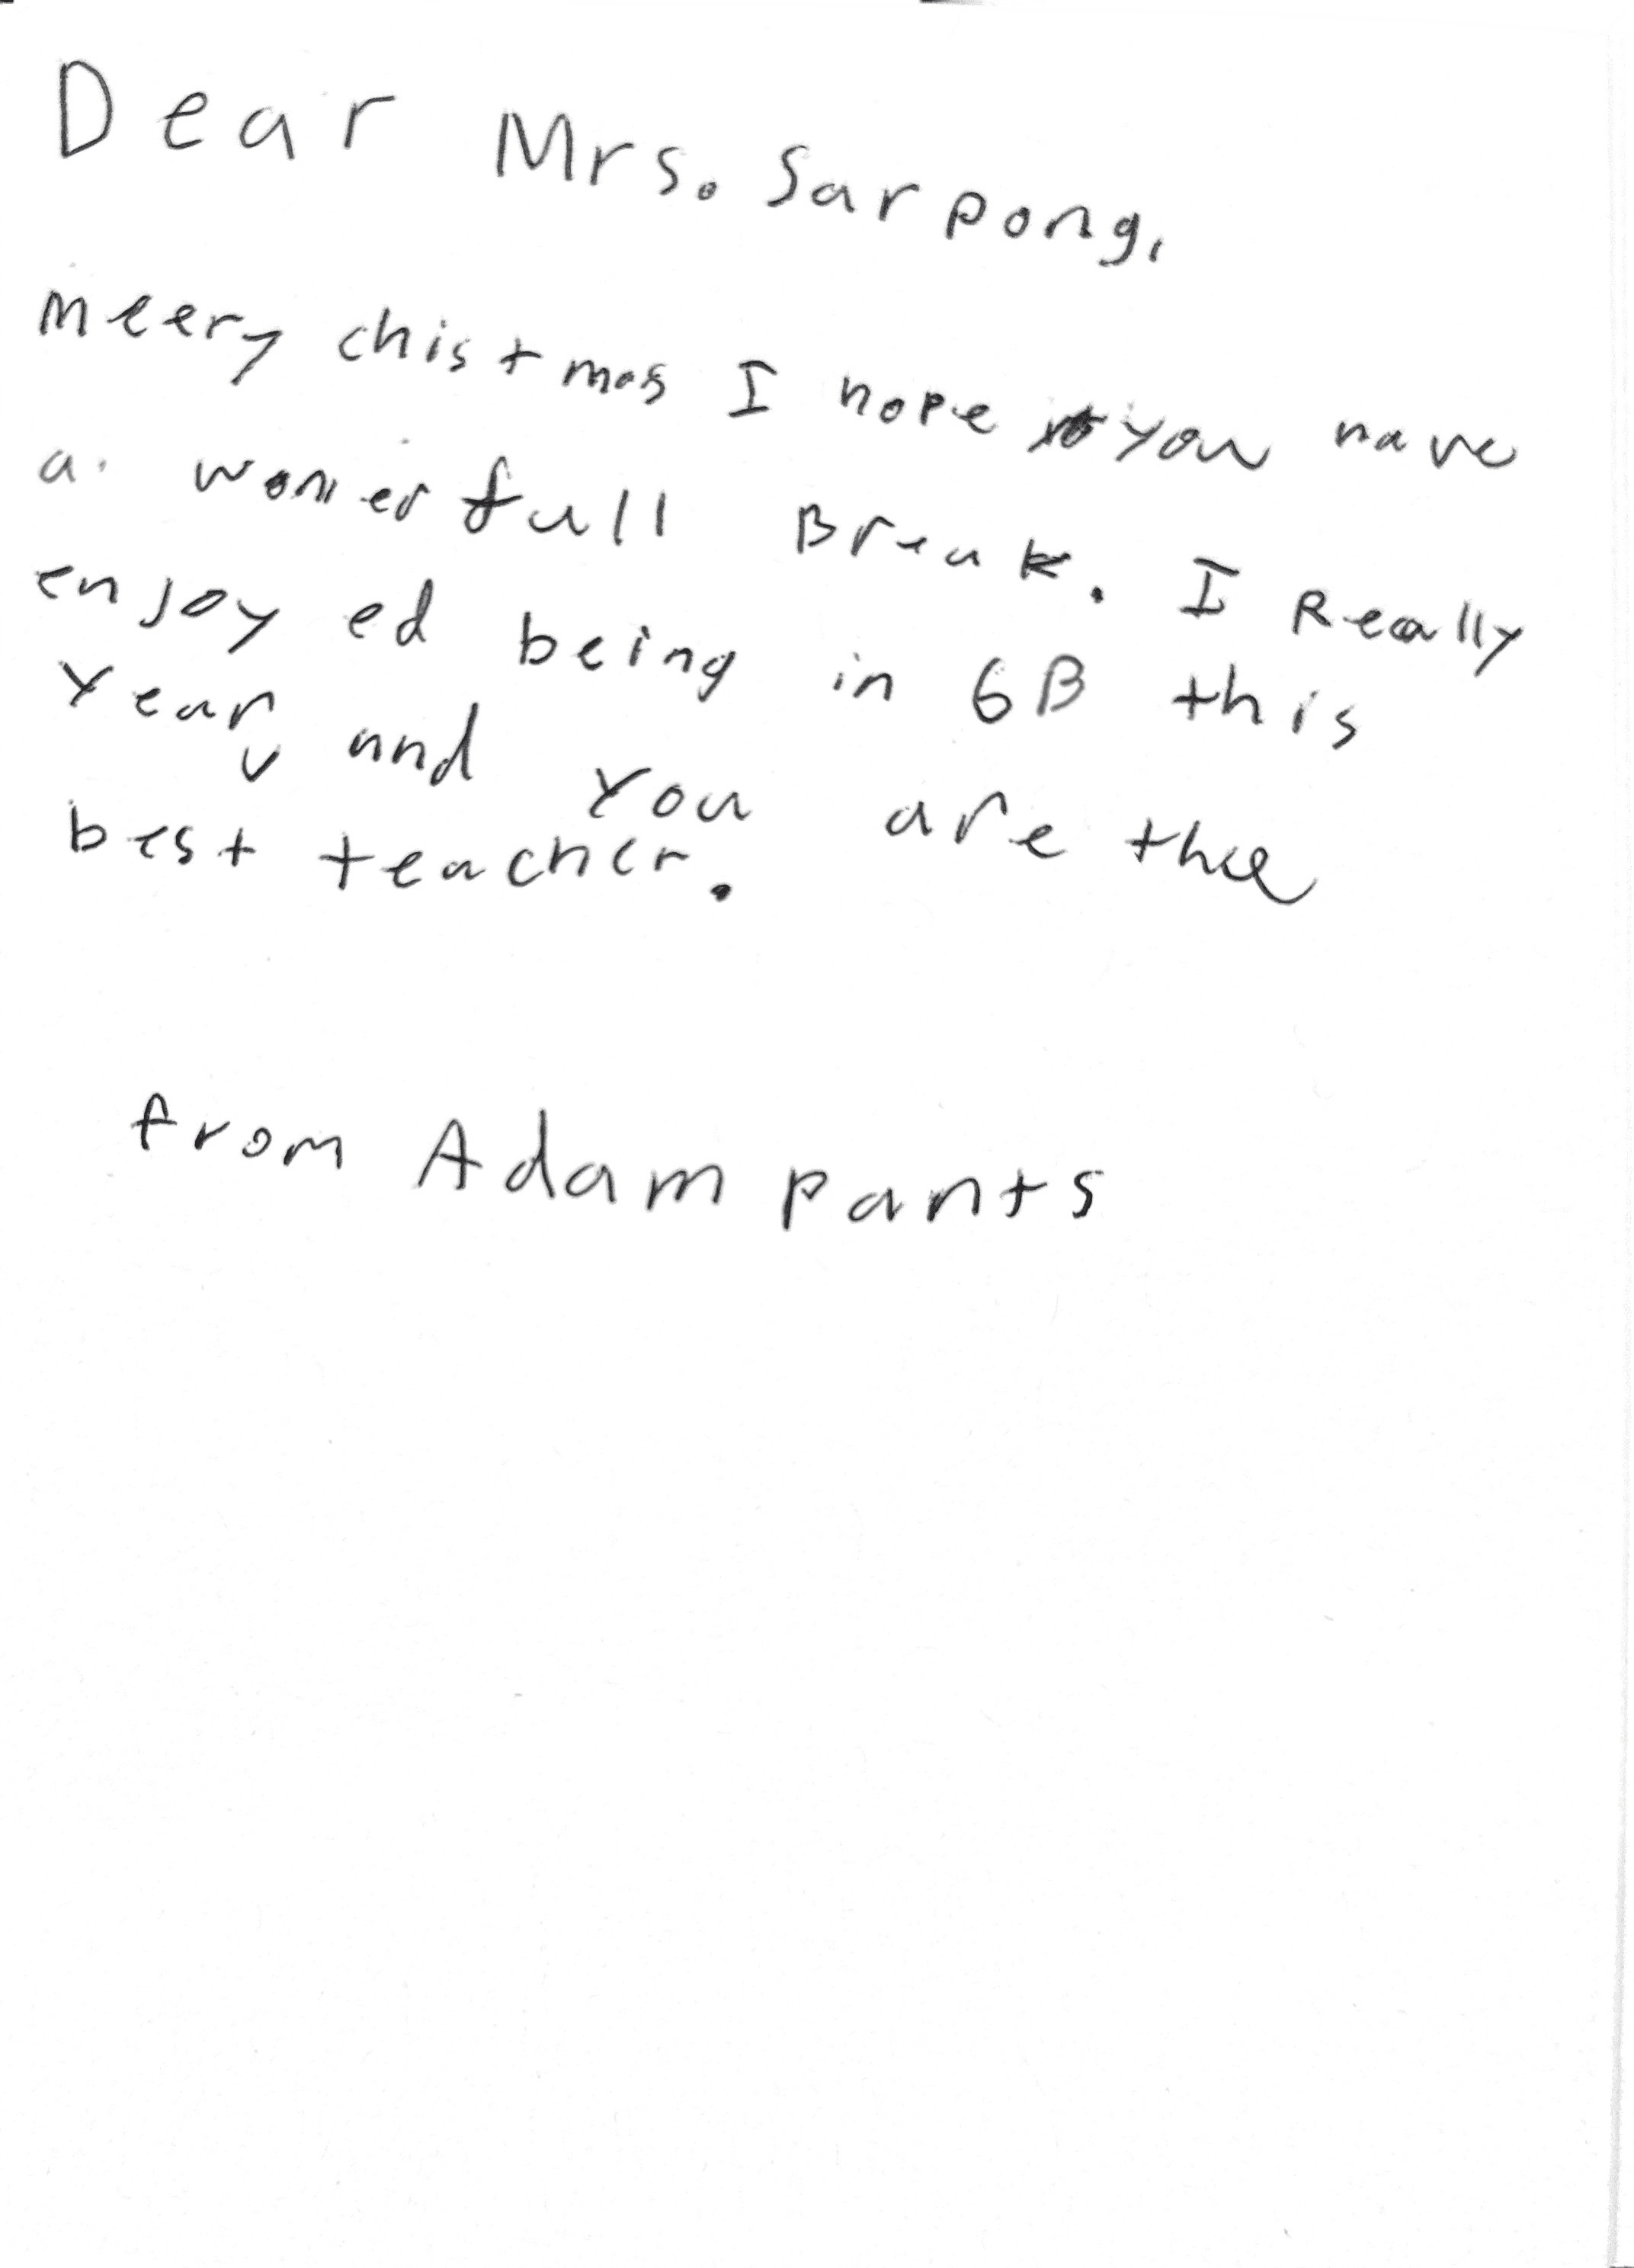 Dear Mrs. Sarpong,
meery chistmas I hope you have
a wonerfull Break. I Really
enjoyed being in 6B this
year, and you are the
best teacher.
from Adam pants